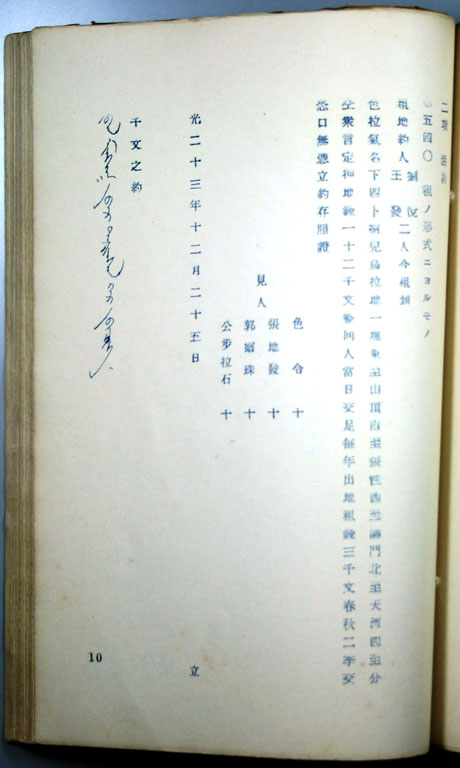 二項 活約
五四〇 租ノ形式ニヨルモノ
租地約人 王發 二人今租到
色拉氣名下四卜桐兒烏拉地一塊東至山頂南至張姓西至溝門北至天河四至分
全衆言定押地錢一十二千文整同人當日交足每年出地租錢三千文春秋二季交
恐口無憑立約存照證
見人
色令 十
張地發 十
郭爾珠 十
公步拉石 十
光二十三年十二月二十五日 立
千文之約
10